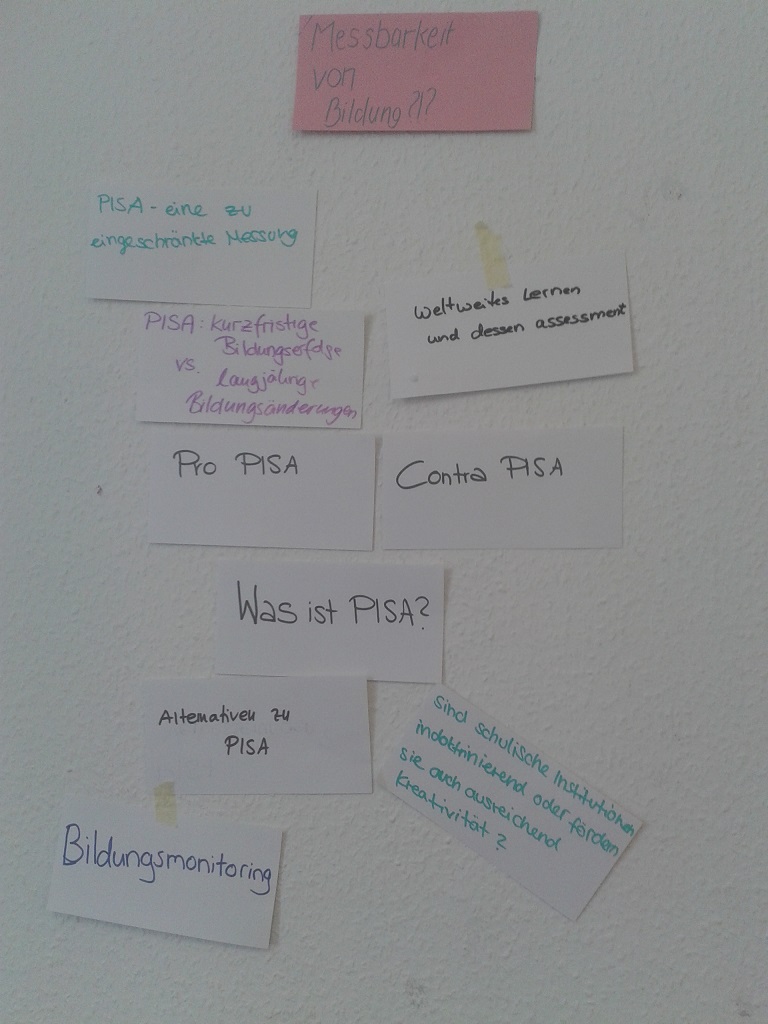 Messbarkeit
von
Bildung?!?
PISA - eine zu
eingeschränkte Messung
weltweites Lernen
und dessen assessment
PISA: kurzfristige
Bildungserfolge
vs. langjährige
Bildungsänderungen
Pro PISA
Contra PISA
Was ist PISA?
Alternativen zu
PISA
sind schulische Institutionen
indoktrinierend oder fördern
sie auch ausreichend
Kreativität?
Bildungsmonitoring